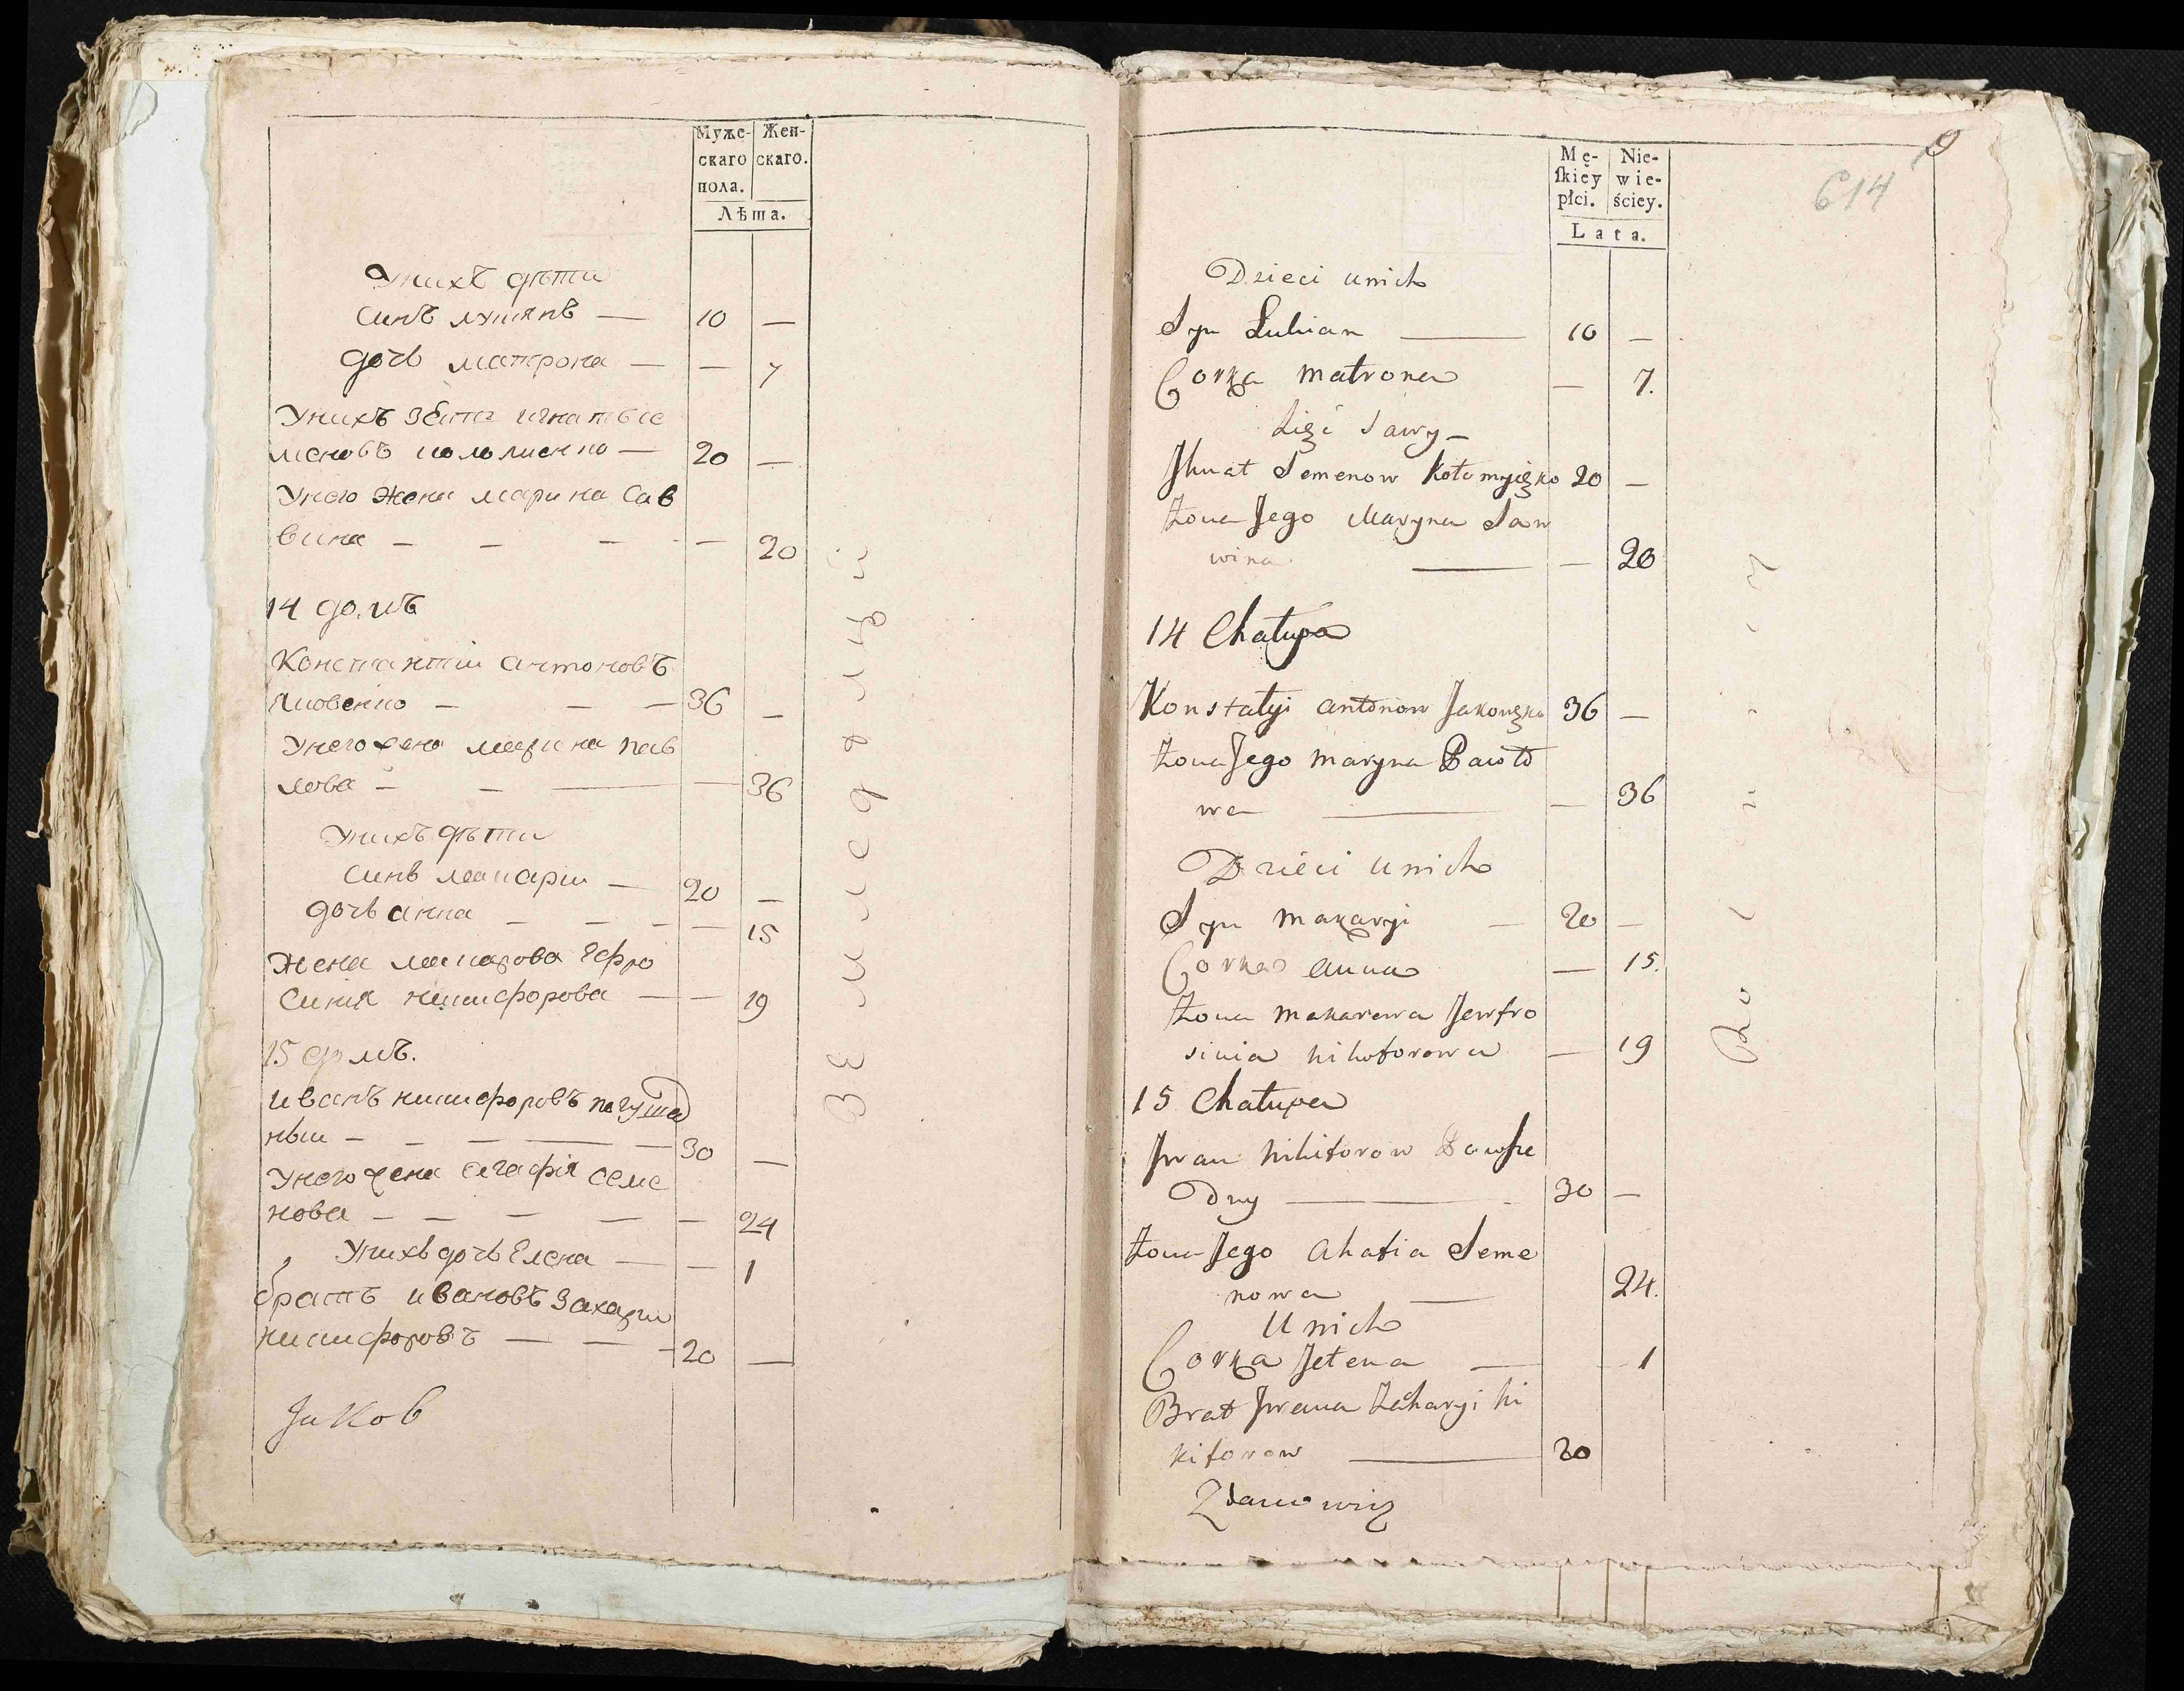 Муже- Жен-
скаго скаго.
пола.
Лѣта.
Унихъ дѣти
Синъ лукянъ — 10 —
дочь матрона — — 7
Унихъ зѣть игнатъ се
меновъ коломиенко — 20 —
Унего жена марина Сав
вина — — — — 20
14 домъ
Константiи антоновъ
яковенко — — — 36 —
Унего жена марина пав
лова — — — — 36
Унихъ дѣти
Синъ макарiи — 20 —
дочь анна — — — — 15
Жена макарова Ефро
синия никифорова — — 19
15 домъ.
иванъ никифоровъ
ныи — — — — — 30 —
Унего жена агафiя семе
нова — — — — — 24
Унихъ дочь Елена — — 1
братъ ивановъ Захарiи
никифоровъ — — — 20 —
Jаков
Земледелци
614
Mę- Nie-
ſkiey wie-
płci. ściey.
Lata.
Dzieci unich
Syn Lukian — 10 —
Corka Matrona — 7.
Zięć Sawy —
Jhnat Semenow Kołomyięko 20 —
Żona Jego Maryna Saw
wina — — 20
14 Chałupa
Konstatyi antonow Jakowęko 36 —
Żona Jego Maryna Pawło
wa — — 36
Dzieci unich
Syn Makaryi — 20 —
Corka anna — 15.
Żona Makarewa Jewfro
sinia Nikoforowa — 19
15 Chałupa
Jwan Nikiforow
Dny — 30 —
Żona Jego Ahafia Seme
nowa — 24.
Unich
Corka Jełena — — 1
Brat Jwana Zacharyi Ni
kiforow — 20
Zdanowicz